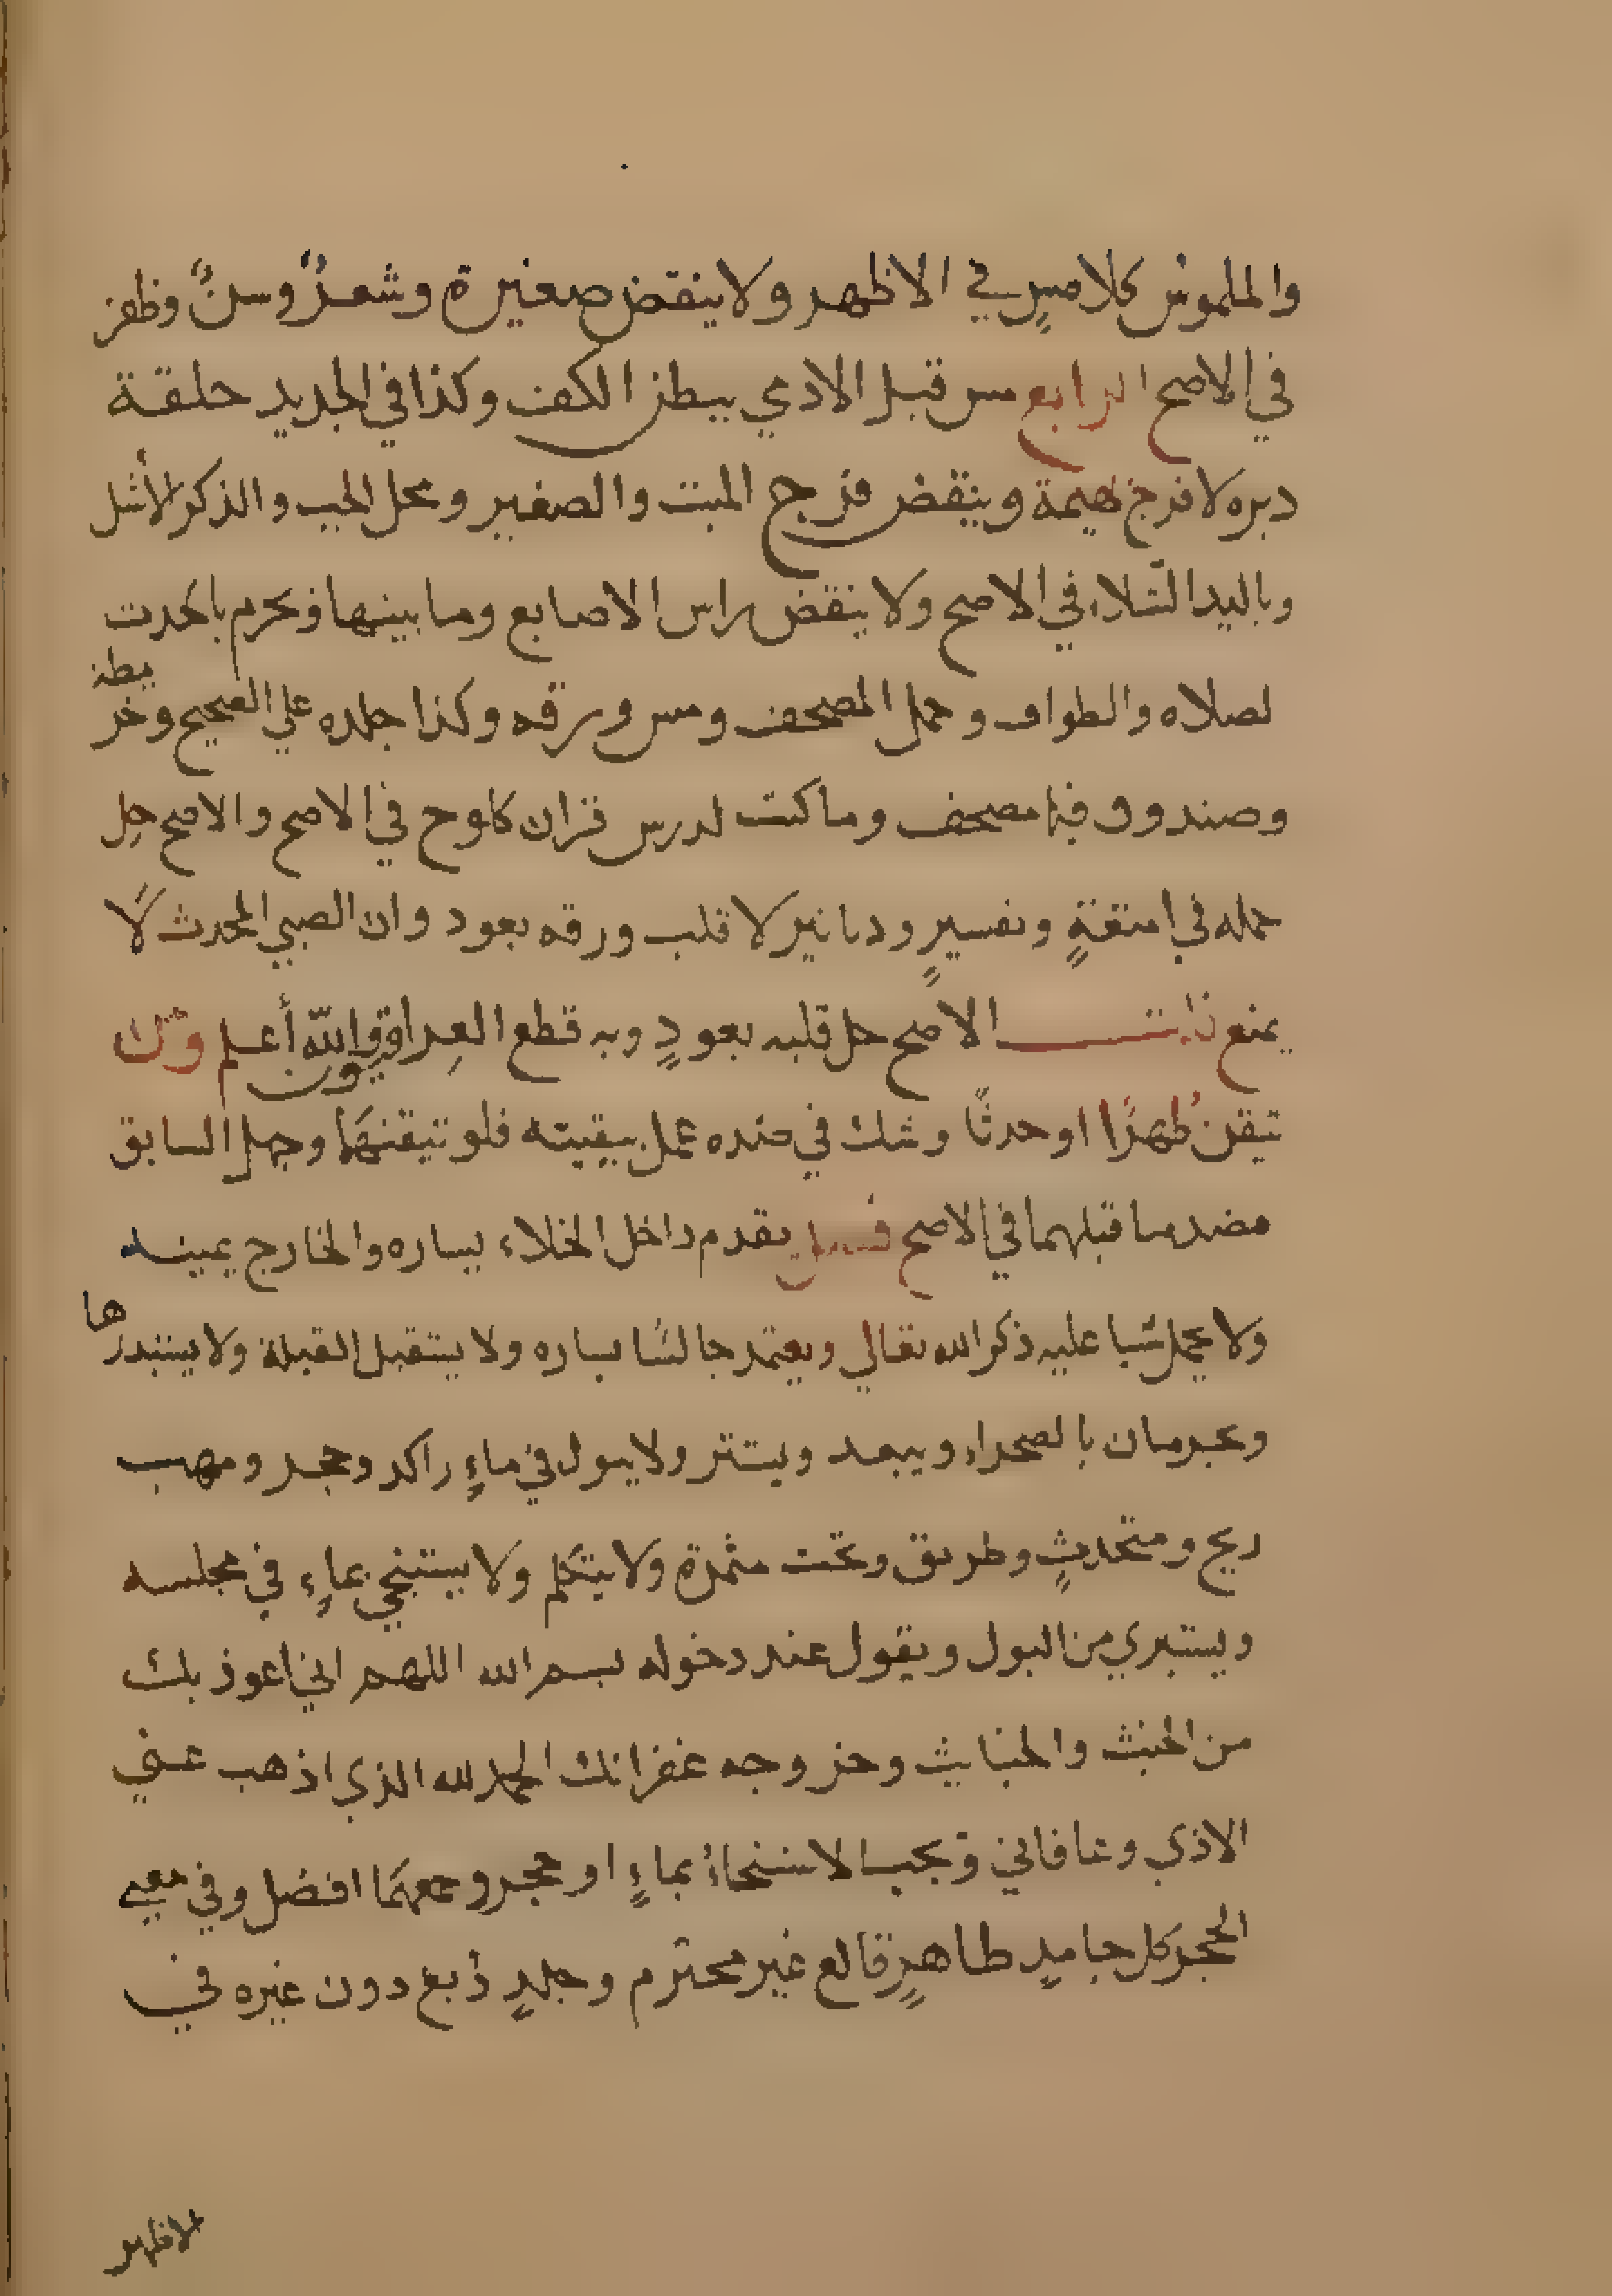 والملموسُ كلامسٍ في الاظهر ولا ينقض صغيرة وشعرٌ وسنٌّ وظفر
في الاصح الرابع مس قبل الادمي ببطن الكف وكذا في الجديد حلقة
دبره لا فرج بهيمة وينقض فرج الميت والصغير ومحل الجب والذكر الأشل
وباليد الشّلاء في الاصح ولا ينقض راس الاصابع وما بينها ويحرم بالحدث
لصلاه والطواف وحمل المصحف ومس ورقه وكذا جلده علي الصحيح وخريطة
وصندوق فيها مصحف وما كتب لدرس قران كلوح في الاصح والاصح حِل
حمله في امتعةٍ وتفسيرٍ ودنانير لا قلب ورقه بعود وان الصبي المحدث لًا
يمنع قلت الاصح حل قلبه بعودٍ وبه قطع العِراقيون والله أعلم ومن
تيقن طُهرًا او حدثًا وشك في ضده عمل بيقينه فلو تيقنهَما وجهل السابق
فضد ما قبلهما في الاصح فصل يقدم داخل الخلاء يساره والخارج يمينه
ولا يحمل شيا عليه ذكر الله تعالي ويعتمد جالسًا يساره ولا يستقبل القبلة ولا يستدبرها
ويحرمان بالصحراء ويبعد ويستتر ولا يبول في ماءٍ راكد وجحر ومهب
ريح ومتحدثٍ وطريق وتحت مثمرة ولا يتكلم ولا يستنجي بماءٍ في مجلسه
ويستبري من البول ويقول عند دخوله بسم الله اللهم اني اعوذ بك
من الخبث والخبايث وخروجه غفرانك الحمد لله الذي اذهب عني
الاذي وعافاني ويجب الاستنجاءُ بماءٍ او حجر وجمعهَما افضل وفي معني
الحجر كل جامدٍ طاهرٍ قالع غير محترم وجلدٍ دُبغ دون غيره في
الاظهر